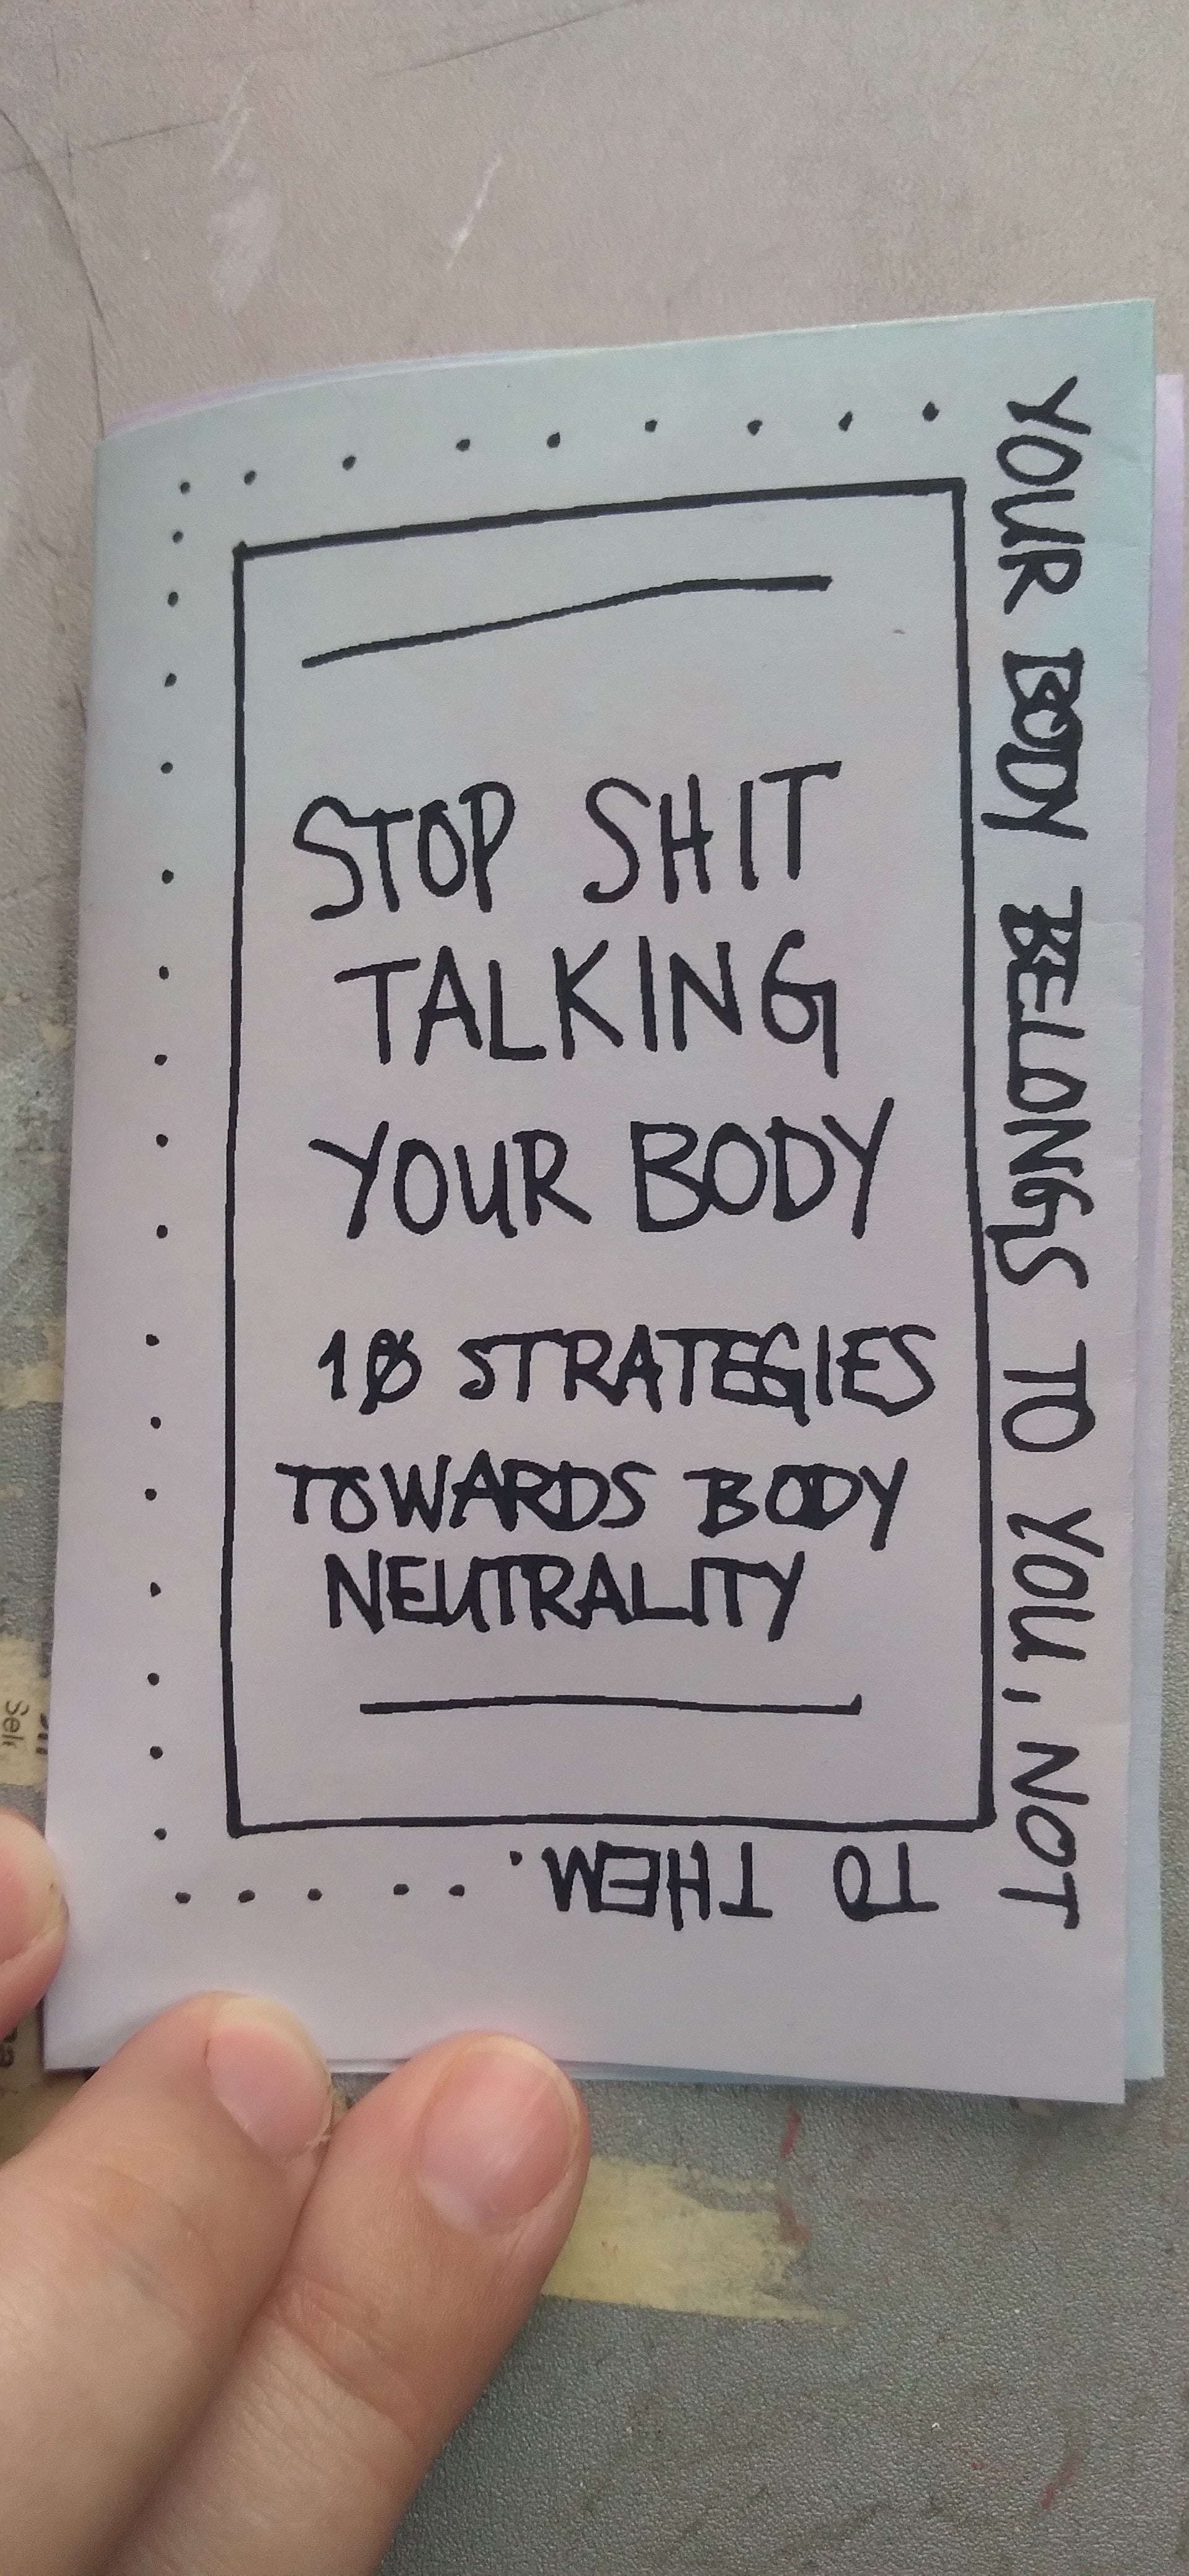 STOP SHIT
TALKING
YOUR BODY
10 STRATEGIES
TOWARDS BODY
NEUTRALITY
YOUR BODY BELONGS TO YOU, NOT
TO THEM.
Self